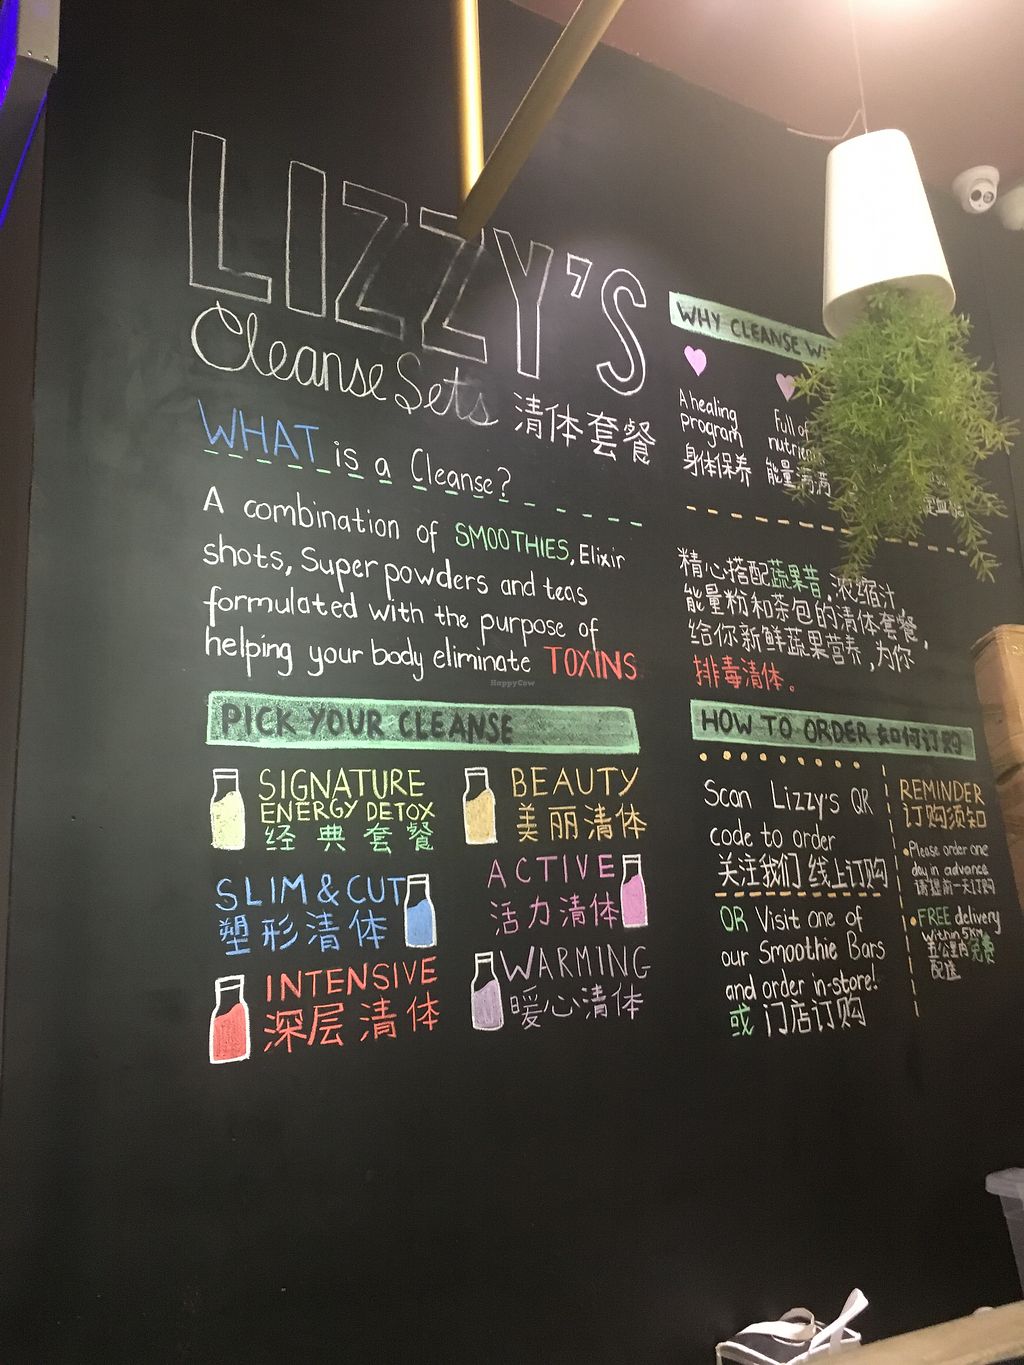 LIZZY'S
Cleanse Sets 清体套餐
WHAT is a Cleanse?
A combination of SMOOTHIES, Elixir
shots, Super powders and teas
formulated with the purpose of
helping your body eliminate TOXINS
HappyCow
PICK YOUR CLEANSE
SIGNATURE
ENERGY DETOX
经典套餐
BEAUTY
美丽清体
SLIM & CUT
塑形清体
ACTIVE
活力清体
INTENSIVE
深层清体
WARMING
暖心清体
WHY CLEANSE
A healing
program
身体保养
Full of
能量满满
精心搭配蔬果昔,浓缩汁
能量粉和茶包的清体套餐,
给你新鲜蔬果营养,为你
排毒清体。
HOW TO ORDER 如何订购
Scan Lizzy's QR
code to order
关注我们 线上订购
OR Visit one of
our Smoothie Bars
and order in-store!
或 门店订购
REMINDER
订购须知
Please order one
day in advance
请提前一天订购
FREE delivery
within 5km
五公里内免费
配送